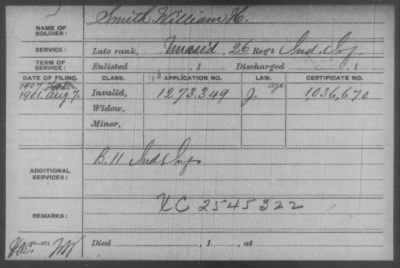 NAME OF SOLDIER: Smith, William H.
SERVICE: Late rank, 26 Reg't Ind. Inf.
TERM OF SERVICE: Enlisted , 1 Discharged , 1
DATE OF FILING. CLASS. APPLICATION NO. LAW. CERTIFICATE NO.
1901, Aug. 7. Invalid, 1273.349 J. 1036,670
Widow,
Minor,
ADDITIONAL SERVICES: B. 11 Ind Inf
REMARKS: XC 2545322
Died , 1 , at